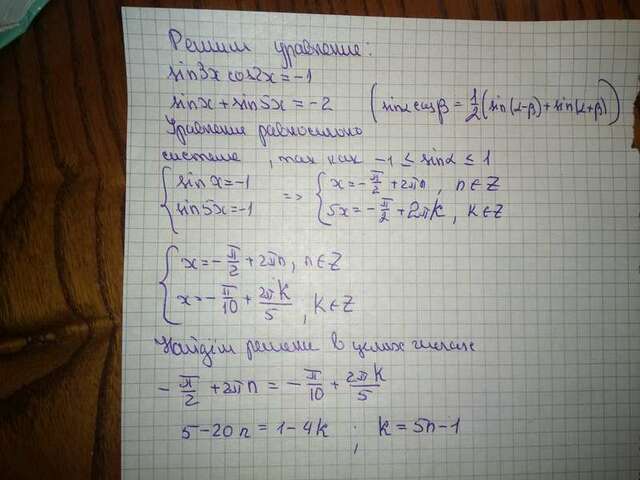 Решим уравнение:
sin3x cos2x = -1
sinx + sin5x = -2 (sinα cosβ = 1/2 (sin(α-β) + sin(α+β)))
Уравнение равносильно
системе , так как -1 ≤ sinα ≤ 1
{ sinx = -1 => { x = -π/2 + 2πn, n∈Z
{ sin5x = -1 { 5x = -π/2 + 2πk, k∈Z
{ x = -π/2 + 2πn, n∈Z
{ x = -π/10 + 2πk/5, k∈Z
Найдём решение в целых числах
-π/2 + 2πn = -π/10 + 2πk/5
5-20n = 1-4k , k = 5n-1